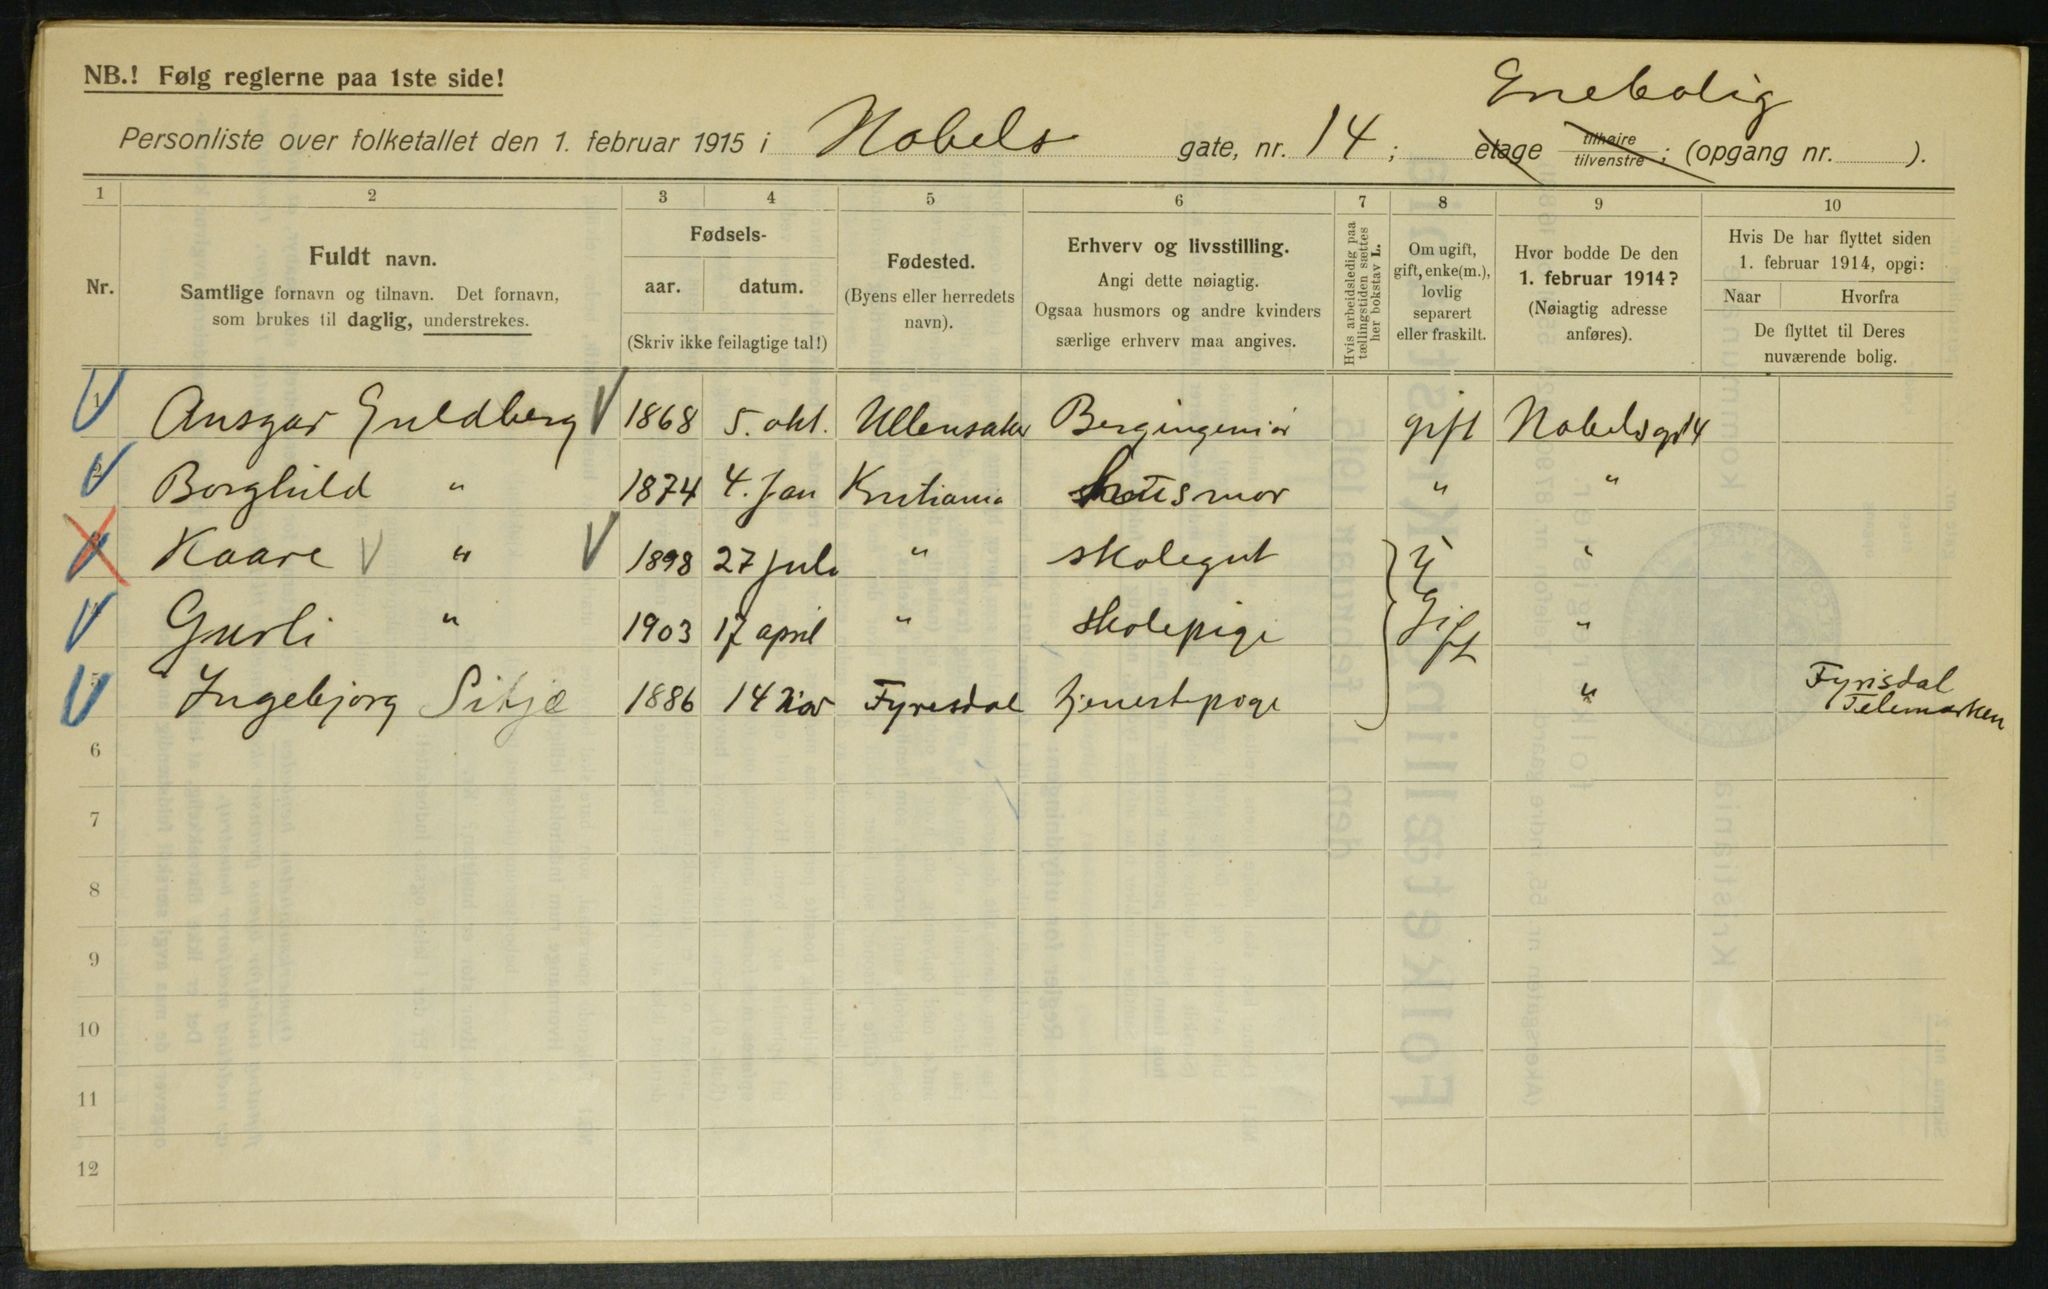 NB.! Følg reglerne paa 1ste side!
Enebolig
Personliste over folketallet den 1. februar 1915 i Nobels gate, nr. 14; etage tilhøire tilvenstre; (opgang nr. ).
1 2 3 4 5 6 7 8 9 10
Nr.
Fuldt navn.
Samtlige fornavn og tilnavn. Det fornavn,
som brukes til daglig, understrekes.
Fødsels-
aar. datum.
(Skriv ikke feilagtige tal!)
Fødested.
(Byens eller herredets
navn).
Erhverv og livsstilling.
Angi dette nøiagtig.
Ogsaa husmors og andre kvinders
særlige erhverv maa angives.
Hvis arbeidsledig paa
tællingstiden sættes
her bokstav L.
Om ugift,
gift, enke(m.),
lovlig
separert
eller fraskilt.
Hvor bodde De den
1. februar 1914?
(Nøiagtig adresse
anføres).
Hvis De har flyttet siden
1. februar 1914, opgi:
Naar Hvorfra
De flyttet til Deres
nuværende bolig.
1 Ansgar Guldberg 1868 5. okt. Ullensaker Bergingeniør gift Nobelsgt 14
2 Borghild " 1874 4. Jan Kristiania husmor " "
3 Kaare " 1898 27 Juli " skolegut ugift "
4 Gurli " 1903 17 april " skolepige "
5 Ingebjørg Sitje 1886 14 Nov Fyresdal tjenestepige " Fyrisdal
Telemarken
6
7
8
9
10
11
12